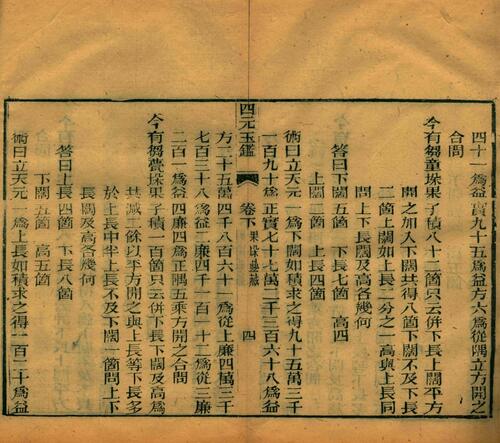 四十一爲益實九十五爲益方六爲從隅立方開之
合問
今有芻童垛果子積八十二箇只云併下長上闊平方
開之加入下闊共得八箇下闊不及下長
二箇上闊如上長二分之一高與上長同
問上下長闊及高各幾何
答曰下闊五箇 下長七箇 高四
上闊二箇 上長四箇
術曰立天元一爲下闊如積求之得九十五萬三千
一百九十爲正實七十七萬二千三百六十八爲益
四元玉鑑 卷下 果垛疊藏 四
方二十五萬四千八百六十一爲從上廉四萬三千
七百三十八爲益二廉四千一百一十二爲從三廉
二百一爲益四廉四爲正隅五乘方開之合問
今有芻甍垛果子積一百箇只云併下長下闊及高爲
共減二餘以平方開之與上長等下長多
於上長中半上長不及下闊一箇問上下
長闊及高各幾何
答曰上長四箇 下長八箇
下闊五箇 高五箇
術曰立天元一爲上長如積求之得一百二十爲益